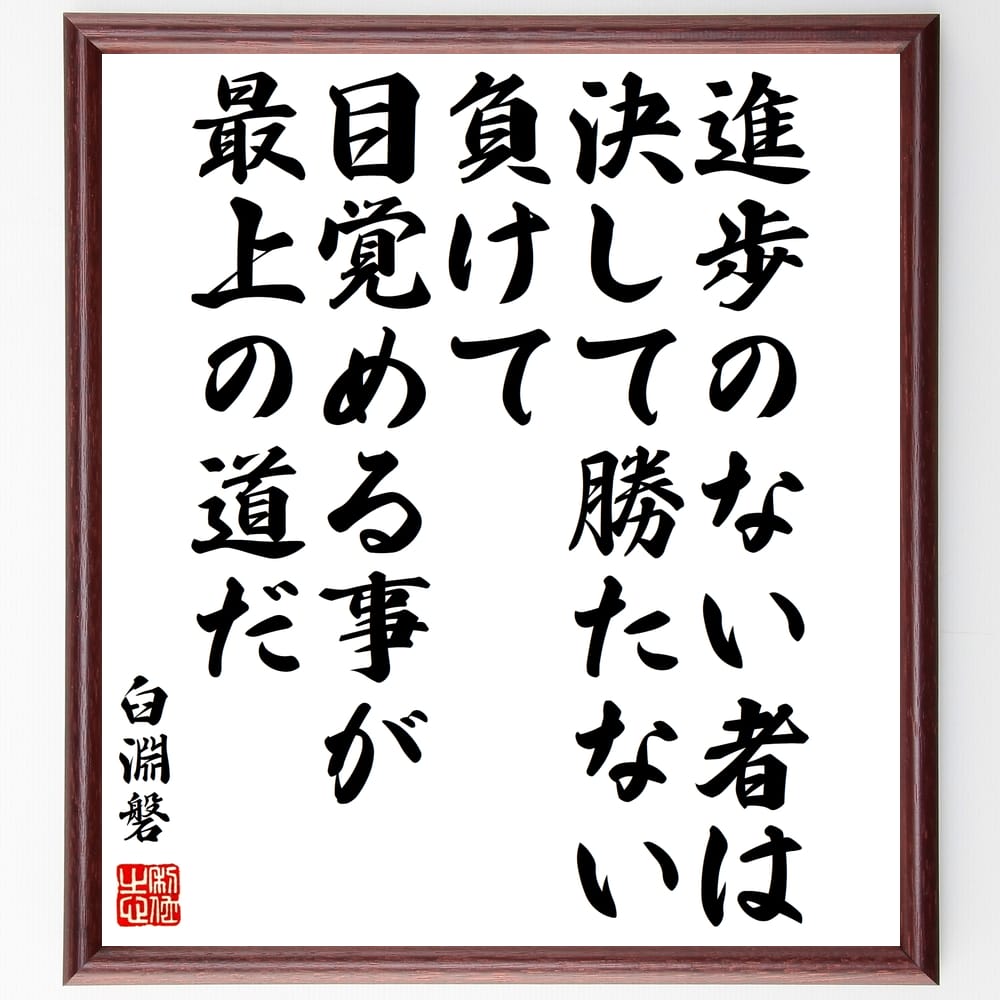 進歩のない者は
決して勝たない
負けて
目覚める事が
最上の道だ
白淵磐